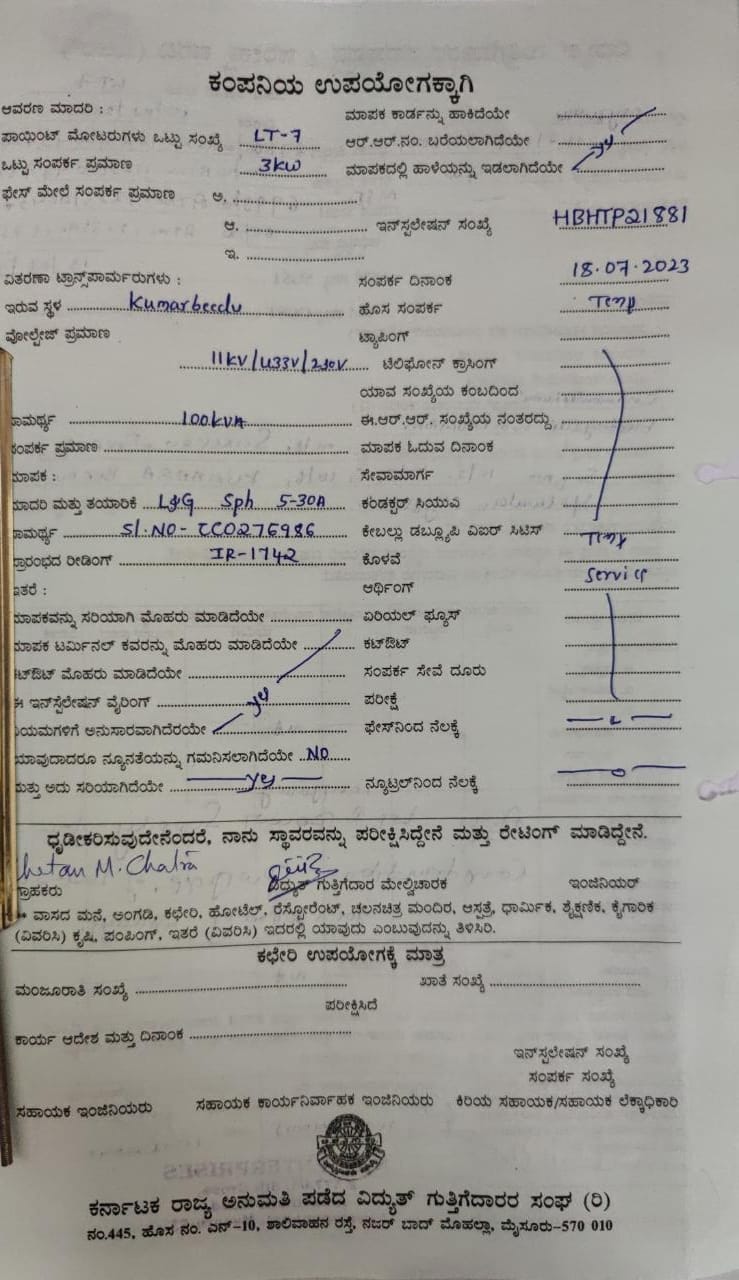 ಕಂಪನಿಯ ಉಪಯೋಗಕ್ಕಾಗಿ
ಆವರಣ ಮಾದರಿ : ಮಾಪಕ ಕಾರ್ಡನ್ನು ಹಾಕಿದೆಯೇ
ಪಾಯಿಂಟ್ ಮೋಟರುಗಳು ಒಟ್ಟು ಸಂಖ್ಯೆ LT-7 ಆರ್.ಆರ್.ನಂ. ಬರೆಯಲಾಗಿದೆಯೇ
ಒಟ್ಟು ಸಂಪರ್ಕ ಪ್ರಮಾಣ 3kw ಮಾಪಕದಲ್ಲಿ ಹಾಳೆಯನ್ನು ಇಡಲಾಗಿದೆಯೇ
ಫೇಸ್ ಮೇಲೆ ಸಂಪರ್ಕ ಪ್ರಮಾಣ ಅ.
ಆ. ಇನ್‌ಸ್ಟಲೇಷನ್ ಸಂಖ್ಯೆ HBHTP21881
ಇ.
ವಿತರಣಾ ಟ್ರಾನ್ಸ್‌ಪಾರ್ಮರುಗಳು : ಸಂಪರ್ಕ ದಿನಾಂಕ 18.07.2023
ಇರುವ ಸ್ಥಳ Kumarbeedu ಹೊಸ ಸಂಪರ್ಕ Temp
ವೋಲ್ಟೇಜ್ ಪ್ರಮಾಣ ಟ್ಯಾಪಿಂಗ್
11KV/433V/230V ಟೆಲಿಫೋನ್ ಕ್ರಾಸಿಂಗ್
ಯಾವ ಸಂಖ್ಯೆಯ ಕಂಬದಿಂದ
ಾಮರ್ಥ್ಯ 100kVA ಈ.ಆರ್.ಆರ್. ಸಂಖ್ಯೆಯ ನಂತರದ್ದು
ಸಂಪರ್ಕ ಪ್ರಮಾಣ ಮಾಪಕ ಓದುವ ದಿನಾಂಕ
ಮಾಪಕ : ಸೇವಾಮಾರ್ಗ
ಮಾದರಿ ಮತ್ತು ತಯಾರಿಕೆ L&G Sph 5-30A ಕಂಡಕ್ಟರ್ ಸಿಯುಎ
ಾಮರ್ಥ್ಯ Sl.NO- CC0276986 ಕೇಬಲ್ಲು ಡಬ್ಲ್ಯೂಪಿ ವಿಐರ್ ಸಿಟಿಸ್ Temp
ಪ್ರಾರಂಭದ ರೀಡಿಂಗ್ IR-1742 ಕೊಳವೆ
ಇತರೆ : ಆರ್ಥಿಂಗ್ Service
ಮಾಪಕವನ್ನು ಸರಿಯಾಗಿ ಮೊಹರು ಮಾಡಿದೆಯೇ ಏರಿಯಲ್ ಫ್ಯೂಸ್
ಮಾಪಕ ಟರ್ಮಿನಲ್ ಕವರನ್ನು ಮೊಹರು ಮಾಡಿದೆಯೇ ಕಟ್‌ಔಟ್
ಕಟ್‌ಔಟ್ ಮೊಹರು ಮಾಡಿದೆಯೇ ಸಂಪರ್ಕ ಸೇವೆ ದೂರು
ಈ ಇನ್‌ಸ್ಟೆಲೇಷನ್ ವೈರಿಂಗ್ yes ಪರೀಕ್ಷೆ
ನಿಯಮಗಳಿಗೆ ಅನುಸಾರವಾಗಿದೆರಯೇ ಫೇಸ್‌ನಿಂದ ನೆಲಕ್ಕೆ
ಯಾವುದಾದರೂ ನ್ಯೂನತೆಯನ್ನು ಗಮನಿಸಲಾಗಿದೆಯೇ NO
ಮತ್ತು ಅದು ಸರಿಯಾಗಿದೆಯೇ yes ನ್ಯೂಟ್ರಲ್‌ನಿಂದ ನೆಲಕ್ಕೆ
ಧೃಡೀಕರಿಸುವುದೇನೆಂದರೆ, ನಾನು ಸ್ಥಾವರವನ್ನು ಪರೀಕ್ಷಿಸಿದ್ದೇನೆ ಮತ್ತು ರೇಟಿಂಗ್ ಮಾಡಿದ್ದೇನೆ.
hetan M. Chatra
ಗ್ರಾಹಕರು ವಿದ್ಯುತ್ ಗುತ್ತಿಗೆದಾರ ಮೇಲ್ವಿಚಾರಕ ಇಂಜಿನಿಯರ್
ವಾಸದ ಮನೆ, ಅಂಗಡಿ, ಕಛೇರಿ, ಹೋಟೆಲ್, ರೆಸ್ಟೋರೆಂಟ್, ಚಲನಚಿತ್ರ ಮಂದಿರ, ಆಸ್ಪತ್ರೆ, ಧಾರ್ಮಿಕ, ಶೈಕ್ಷಣಿಕ, ಕೈಗಾರಿಕ
(ವಿವರಿಸಿ) ಕೃಷಿ, ಪಂಪಿಂಗ್, ಇತರೆ (ವಿವರಿಸಿ) ಇದರಲ್ಲಿ ಯಾವುದು ಎಂಬುವುದನ್ನು ತಿಳಿಸಿರಿ.
ಕಛೇರಿ ಉಪಯೋಗಕ್ಕೆ ಮಾತ್ರ
ಮಂಜೂರಾತಿ ಸಂಖ್ಯೆ ಖಾತೆ ಸಂಖ್ಯೆ
ಪರೀಕ್ಷಿಸಿದೆ
ಕಾರ್ಯ ಆದೇಶ ಮತ್ತು ದಿನಾಂಕ
ಇನ್‌ಸ್ಟಲೇಷನ್ ಸಂಖ್ಯೆ
ಸಂಪರ್ಕ ಸಂಖ್ಯೆ
ಸಹಾಯಕ ಇಂಜಿನಿಯರು ಸಹಾಯಕ ಕಾರ್ಯನಿರ್ವಾಹಕ ಇಂಜಿನಿಯರು ಕಿರಿಯ ಸಹಾಯಕ/ಸಹಾಯಕ ಲೆಕ್ಕಾಧಿಕಾರಿ
ಕರ್ನಾಟಕ ರಾಜ್ಯ ಅನುಮತಿ ಪಡೆದ ವಿದ್ಯುತ್ ಗುತ್ತಿಗೆದಾರರ ಸಂಘ (ರಿ)
ನಂ.445, ಹೊಸ ನಂ. ಎನ್-10, ಶಾಲಿವಾಹನ ರಸ್ತೆ, ನಜರ್ ಬಾದ್ ಮೊಹಲ್ಲಾ, ಮೈಸೂರು-570 010